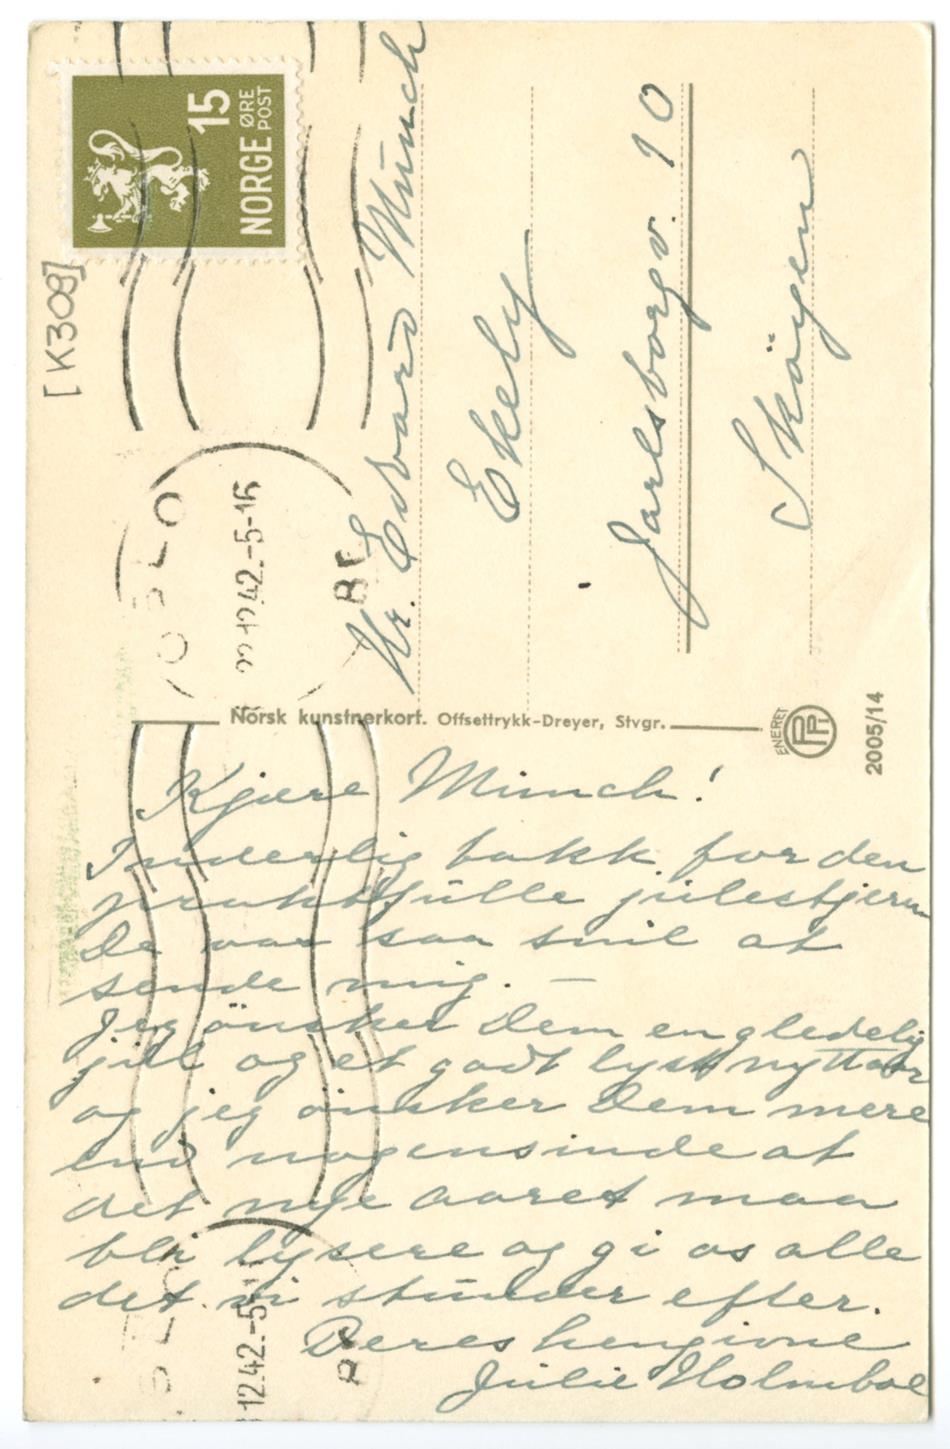 NORGE 15 ØRE POST
[K308]
OSLO
22.12.42.-5-16
Hr. Edvard Münch
Ekely
Jarlsborgv. 10
Sköyen
Norsk kunstnerkort. Offsettrykk-Dreyer, Stvgr.
ENERET
2005/14
Kjære Münch!
Inderlig takk for den
praktfülle jülestjern
De var saa snil at
sende mig. —
Jeg önsker Dem en gledelig
jül og et godt lyst nyttaar
og jeg önsker Dem mere
end nogensinde at
det nye aaret maa
bli lysere og gi os alle
det vi stünder efter.
Deres hengivne
Jülie Holmboe
12.42.-5